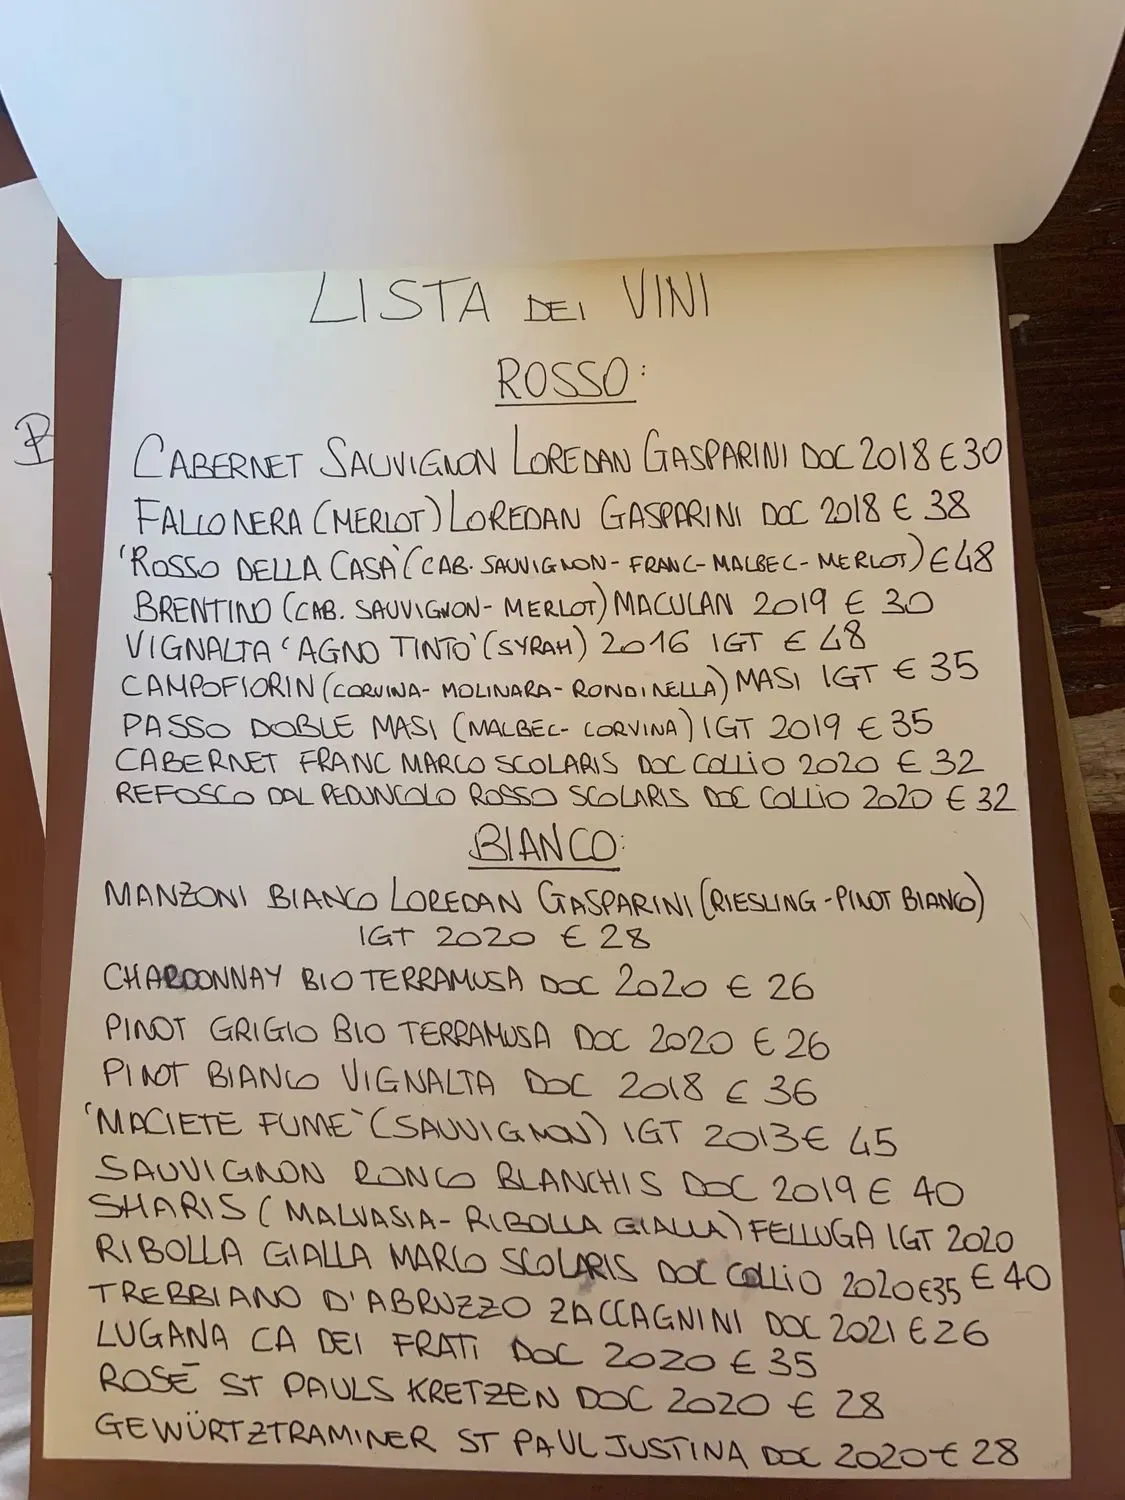 LISTA DEI VINI
ROSSO:
CABERNET SAUVIGNON LOREDAN GASPARINI DOC 2018 € 30
FALLO NERA (MERLOT) LOREDAN GASPARINI DOC 2018 € 38
'ROSSO DELLA CASA' (CAB. SAUVIGNON - FRANC - MALBEC - MERLOT) € 48
BRENTINO (CAB. SAUVIGNON - MERLOT) MACULAN 2019 € 30
VIGNALTA 'AGNO TINTO' (SYRAH) 2016 IGT € 48
CAMPOFIORIN (CORVINA - MOLINARA - RONDINELLA) MASI IGT € 35
PASSO DOBLE MASI (MALBEC - CORVINA) IGT 2019 € 35
CABERNET FRANC MARCO SCOLARIS DOC COLLIO 2020 € 32
REFOSCO DAL PEDUNCOLO ROSSO SCOLARIS DOC COLLIO 2020 € 32
BIANCO:
MANZONI BIANCO LOREDAN GASPARINI (RIESLING - PINOT BIANCO)
IGT 2020 € 28
CHARDONNAY BIO TERRAMUSA DOC 2020 € 26
PINOT GRIGIO BIO TERRAMUSA DOC 2020 € 26
PINOT BIANCO VIGNALTA DOC 2018 € 36
'MACIETE FUME' (SAUVIGNON) IGT 2013 € 45
SAUVIGNON RONCO BLANCHIS DOC 2019 € 40
SHARIS (MALVASIA - RIBOLLA GIALLA) FELLUGA IGT 2020
€ 40
RIBOLLA GIALLA MARCO SCOLARIS DOC COLLIO 2020 €35
TREBBIANO D'ABRUZZO ZACCAGNINI DOC 2021 € 26
LUGANA CA DEI FRATI DOC 2020 € 35
ROSÉ ST PAULS KRETZEN DOC 2020 € 28
GEWÜRTZTRAMINER ST PAUL JUSTINA DOC 2020 € 28